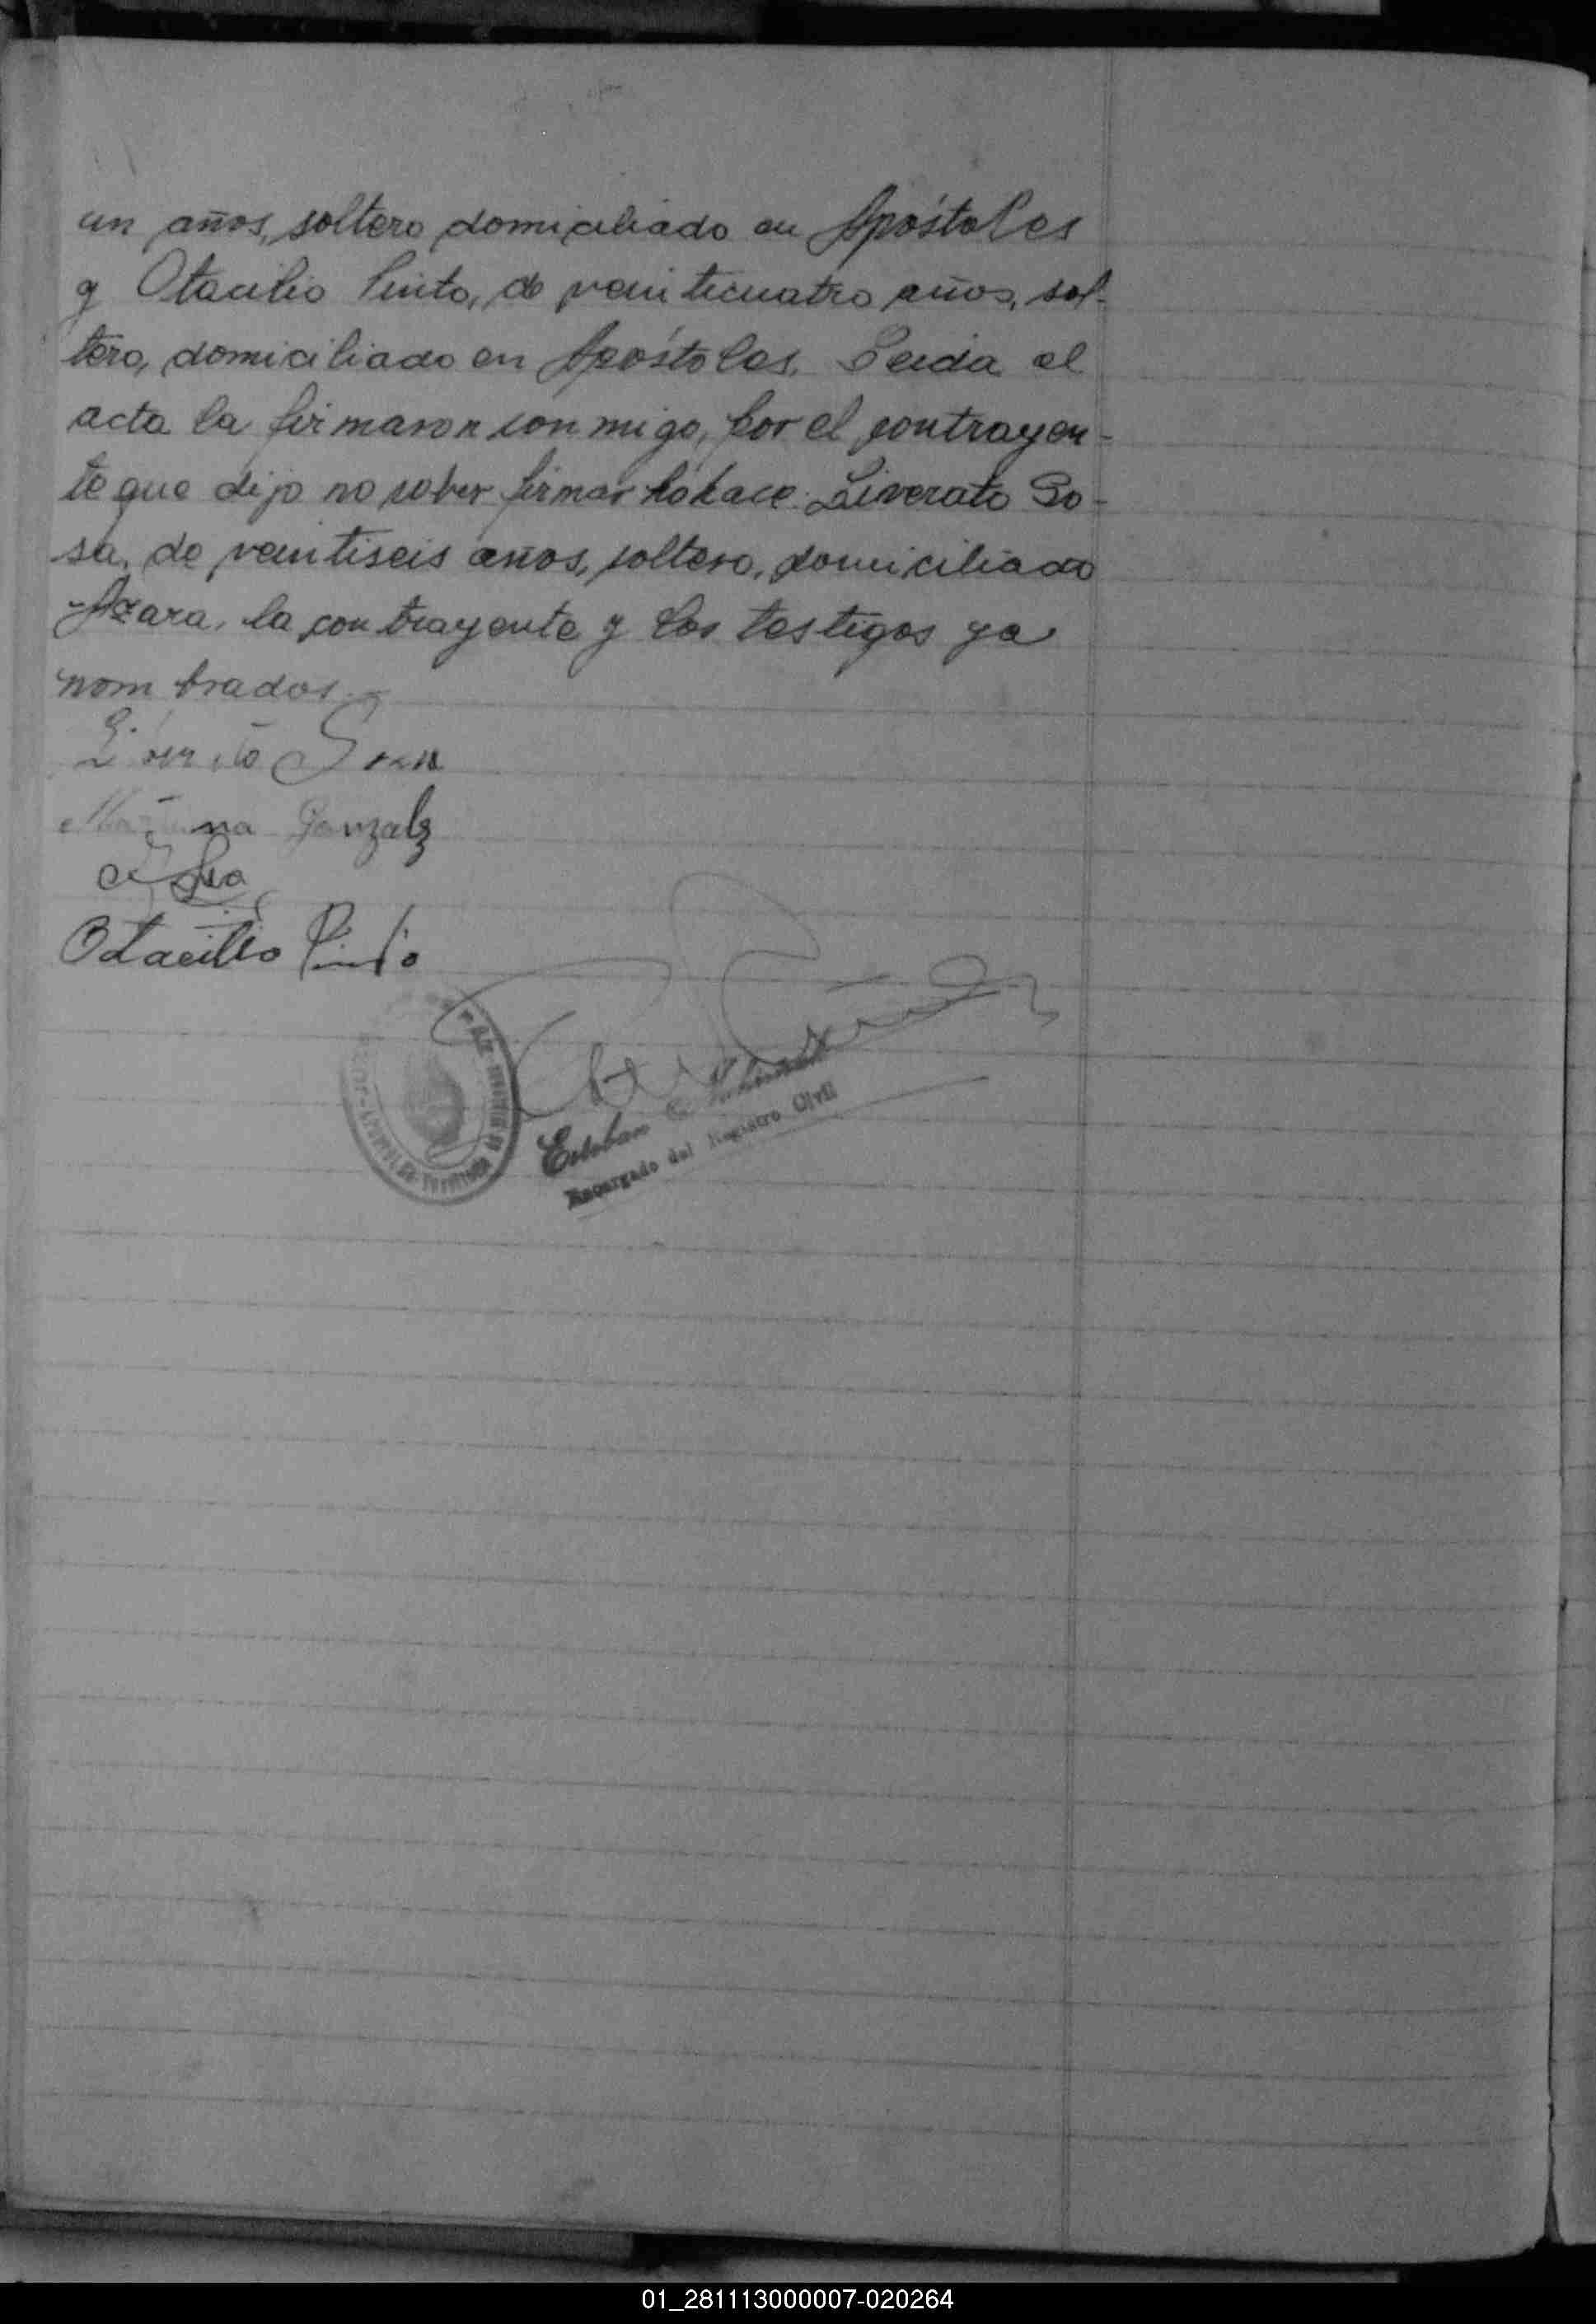 un años, soltero domiciliado en Apóstoles
y Otacilio Pinto, de veinticuatro años, sol-
tero, domiciliado en Apóstoles. Leida el
acta la firmaron conmigo, por el contrayen-
te que dijo no saber firmar lo hace: Liverato So-
sa, de veintiseis años, soltero, domiciliado
Azara, la contrayente y los testigos ya
nombrados.
Sosa
Gonzalz
Otacilio Pinto
Esteban
Encargado del Registro Civil
01_281113000007-020264